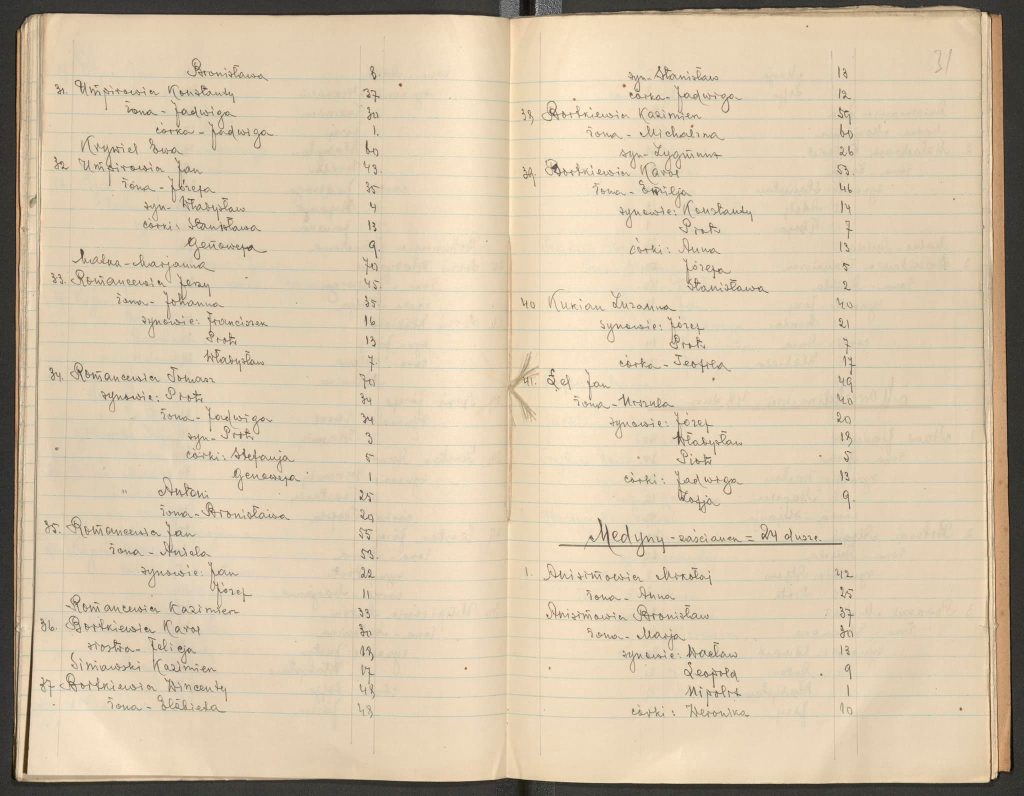 Bronisława 8.
31. Umpirowicz Konstanty 37
żona - Jadwiga 30
córka - Jadwiga 1.
Krywiel Ewa 60
32 Umpirowicz Jan 43.
żona - Józefa 35
syn - Władysław 4
córki: Stanisława 13
Genowefa 9.
Matka - Marjanna 70
33. Romancewicz Jerzy 45.
żona - Johanna 35
synowie: Franciszek 16
Piotr 13
Władysław 7.
34. Romancewicz Tomasz 70
synowie: Piotr 34
żona - Jadwiga 34
syn - Piotr 3
córki: Stefanja 5
Genowefa 1
" Antoni 25
żona - Bronisława 20
35. Romancewicz Jan 55
żona - Aniela 53.
synowie: Jan 22
Józef 11
Romancewicz Kazimierz 33
36. Bortkiewicz Karol 30
siostra - Felicja 18
Siniawski Kazimierz 17
37 Bortkiewicz Wincenty 48
żona - Elżbieta 48
31
syn - Stanisław 13
córka - Jadwiga 12
38, Bortkiewicz Kazimierz 59
żona - Michalina 60
syn - Zygmunt 26
39. Bortkiewicz Karol 53.
żona - Emilja 46
synowie: Konstanty 14
Piotr 7
córki: Anna 13
Józefa 5
Stanisława 2
40 Kukian Zuzanna 40
synowie: Józef 21
Piotr 7
córka - Teofila 17
41. Łel Jan 49
żona - Urszula 40
synowie: Józef 20
Władysław 18
Piotr 5
córki: Jadwiga 13
Zofja 9.
Medyny - zaścianek = 24 dusze.
1. Anisimowicz Mikołaj 42
żona - Anna 25
Anisimowicz Bronisław 37
żona - Marja 30
synowie: Wacław 13
Leopold 9
Hipolit 1
córki: Weronika 10